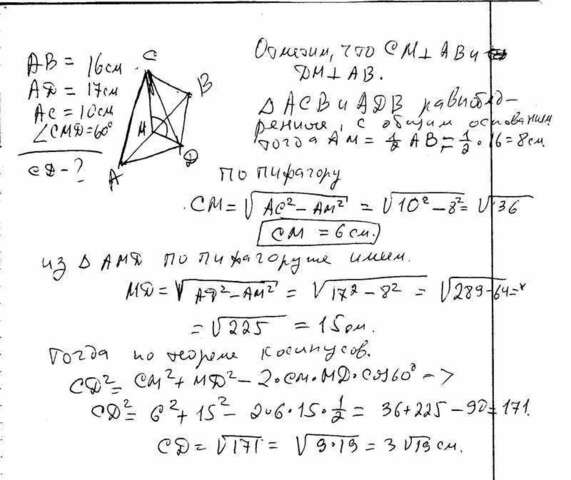 AB = 16 см
AD = 17 см
AC = 10 см
∠CMD = 60°
CD - ?
C
B
M
D
A
Отметим, что CM ⊥ AB и
DM ⊥ AB.
Δ ACB и ADB равнобед-
ренные, с общим основанием
тогда AM = 1/2 AB = 1/2 · 16 = 8 см.
По пифагору
CM = √AC² - AM² = √10² - 8² = √36
CM = 6 см.
из Δ AMD по пифагору же имеем.
MD = √AD² - AM² = √17² - 8² = √289 - 64 =
= √225 = 15 см.
Тогда по теореме косинусов.
CD² = CM² + MD² - 2 · CM · MD · cos 60° ->
CD² = 6² + 15² - 2 · 6 · 15 · 1/2 = 36 + 225 - 90 = 171.
CD = √171 = √9 · 19 = 3 √19 см.